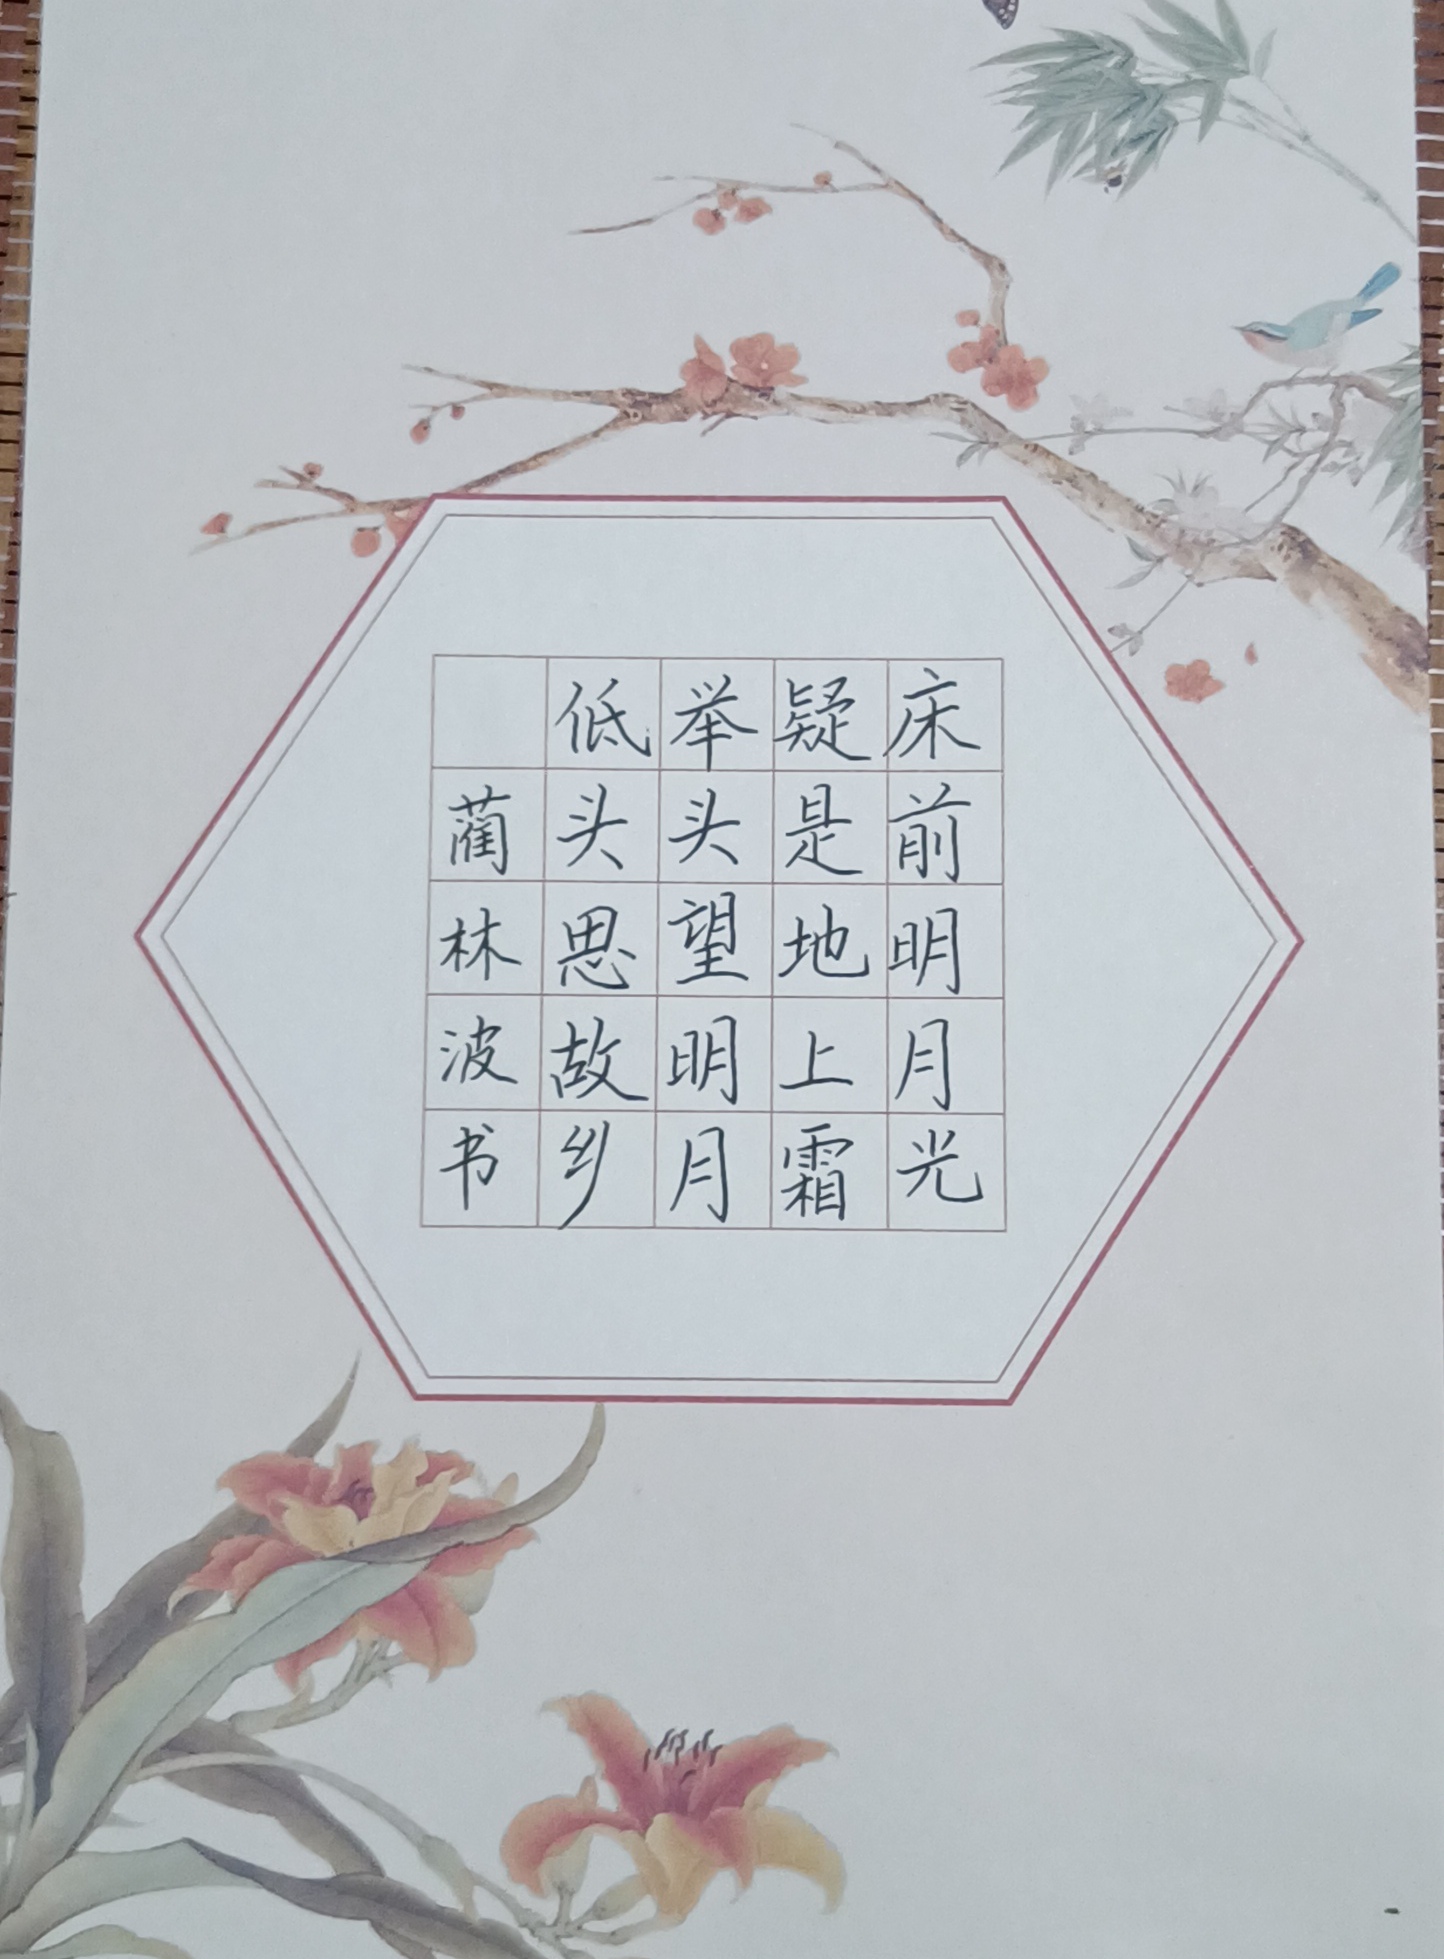 床前明月光
疑是地上霜
举头望明月
低头思故乡
蔺林波书